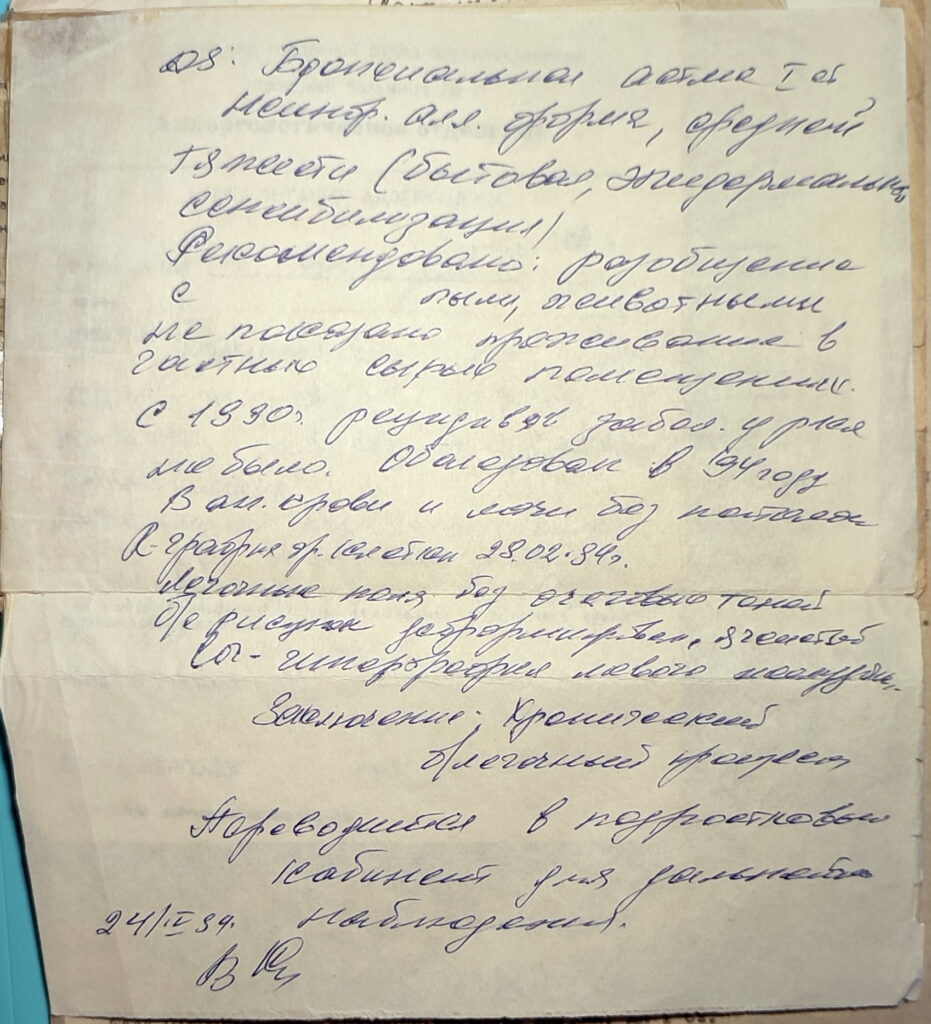 DS: Бронхиальная астма I ст
Неинф. алл. форма, средней
тяжести (бытовая, эпидермальная
сенсибилизация)
Рекомендовано: разобщение
с пыли, животными
не показано проживание в
частных сырых помещениях.
С 1990г. рецидивов забол. у рдля
не было. Обследован в 94 году
В ан. крови и мочи без патологи
R-графия гр. клетки 28.02.94г.
Легочные поля без очаговых теней
б/л рисунок деформирован, ячеистый
Cor - гипертрофия левого желудочк.
Заключение: Хронический
б/легочный процесс
Переводится в подростковый
кабинет для дальнейш
24/IV 94. наблюдения.